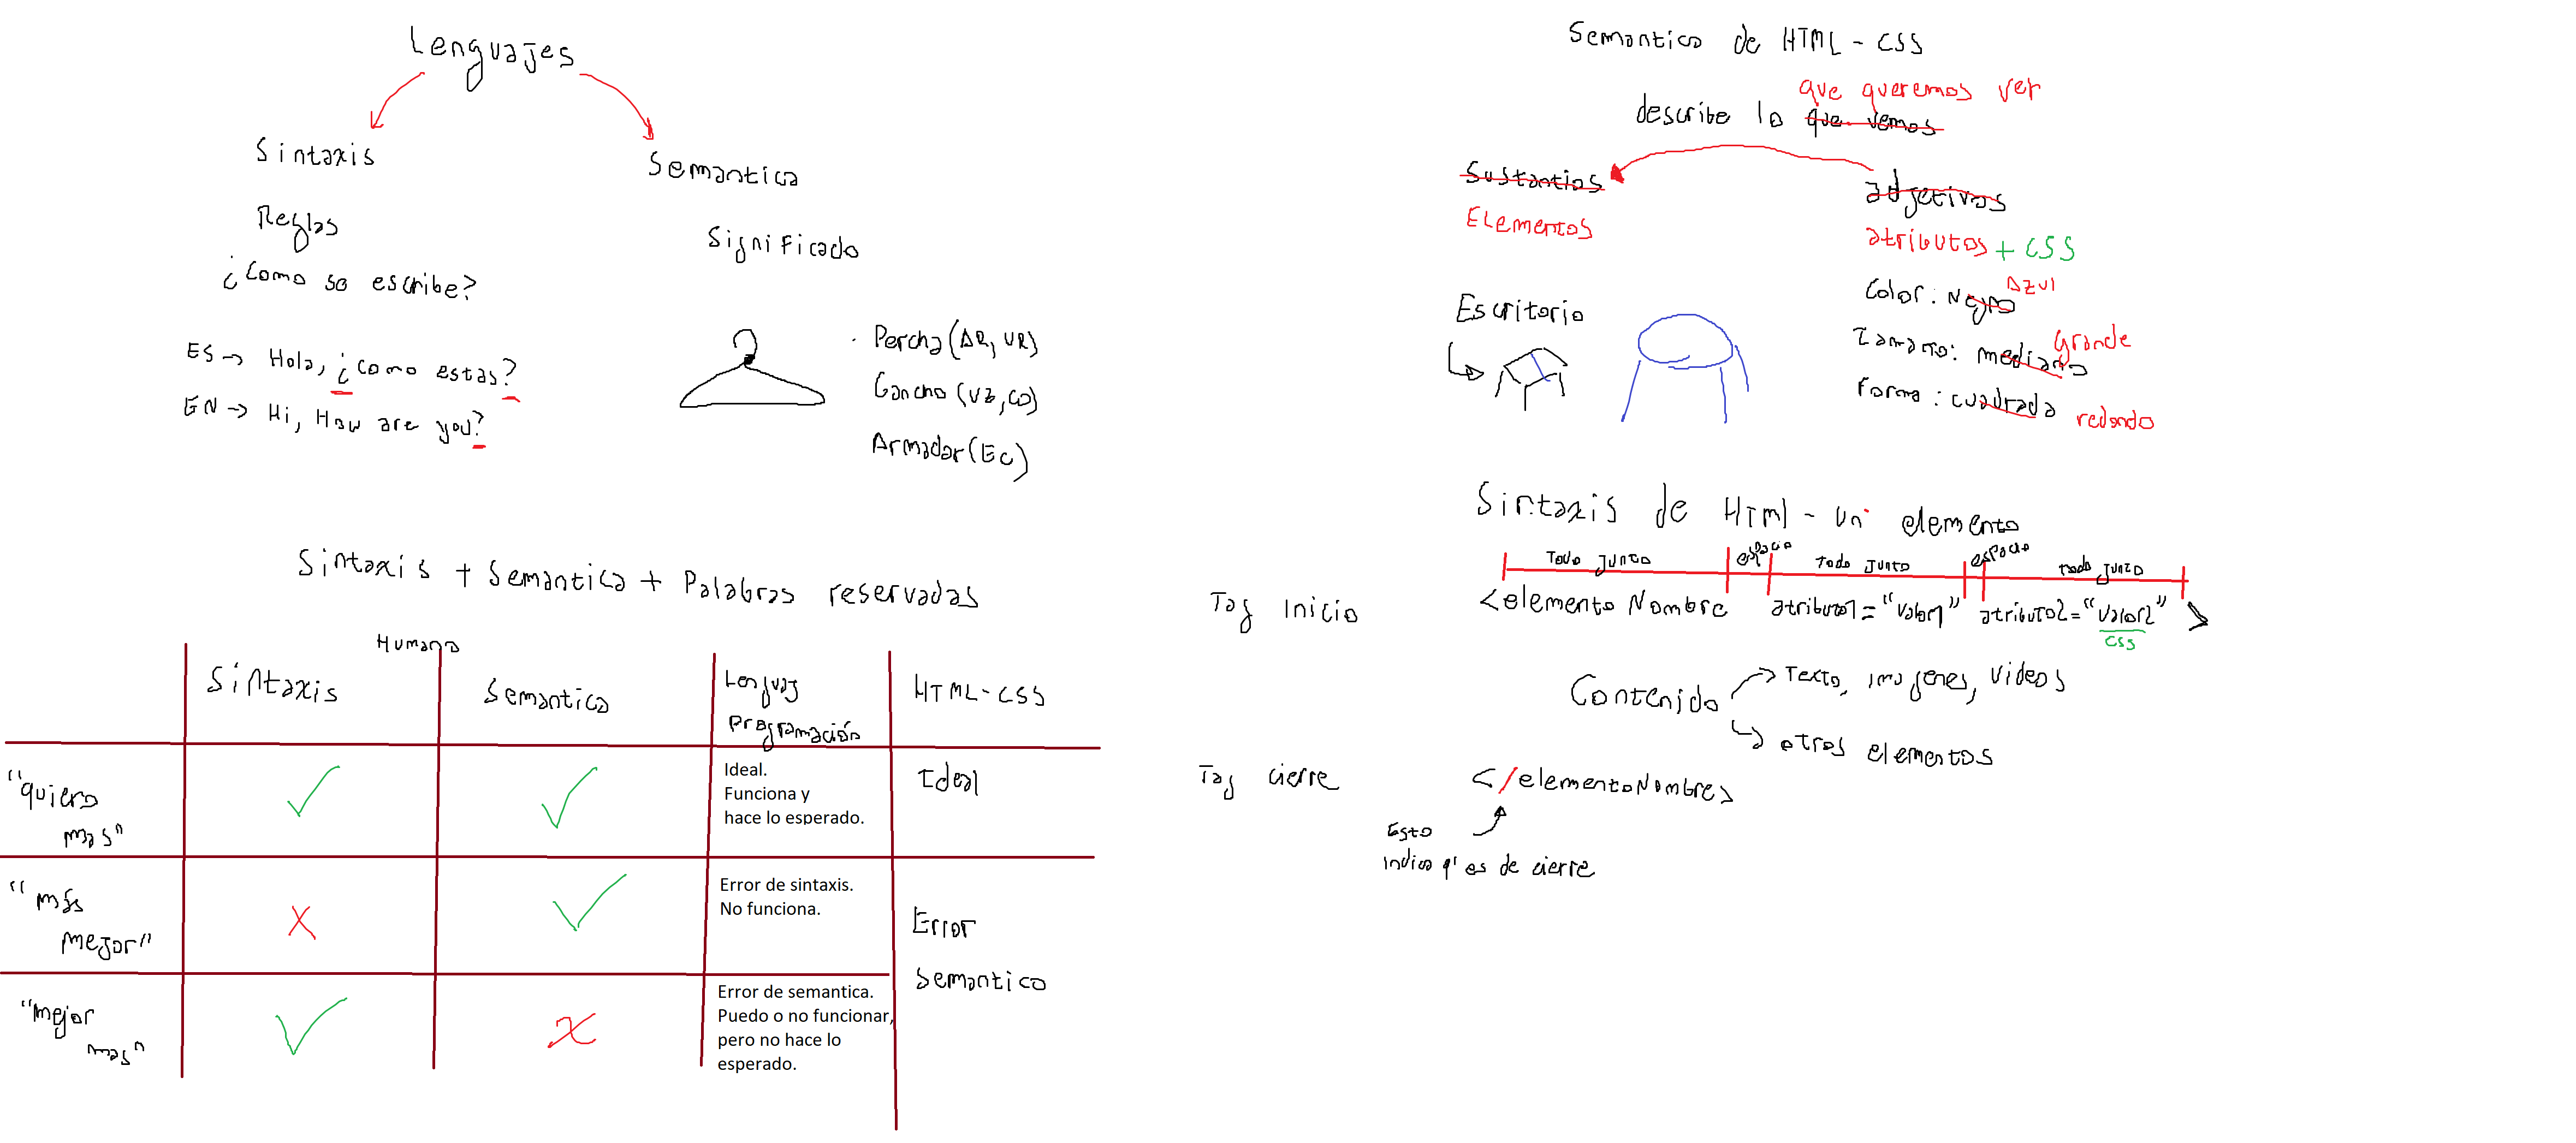 Lenguajes
Sintaxis
Semantica
Reglas
¿Como se escribe?
Significado
ES → Hola, ¿como estas?
EN → Hi, How are you?
· Percha (AR, UR)
Gancho (VZ, CO)
Armador (EC)
Sintaxis + Semantica + Palabras reservadas
Humano
Sintaxis
Semantica
Lenguaj
programación
HTML-CSS
"quiero
mas"
Ideal.
Funciona y
hace lo esperado.
Ideal
"más
mejor"
Error de sintaxis.
No funciona.
Error
semantico
"mejor
mas"
Error de semantica.
Puedo o no funcionar,
pero no hace lo
esperado.
Semantica de HTML - CSS
que queremos ver
describe lo que vemos
Sustantios
adjetivos
Elementos
atributos + CSS
Escritorio
Color: Negro Azul
Tamaño: mediano Grande
Forma: cuadrada redondo
Sintaxis de Html - un elemento
Todo junto espacio todo junto espacio todo junto
Tag inicio <elementoNombre atributo1="valor1" atributo2="valor2" >
CSS
Contenido → Texto, imagenes, videos
→ otros elementos
Tag cierre </elementoNombre>
Esto
indica q' es de cierre